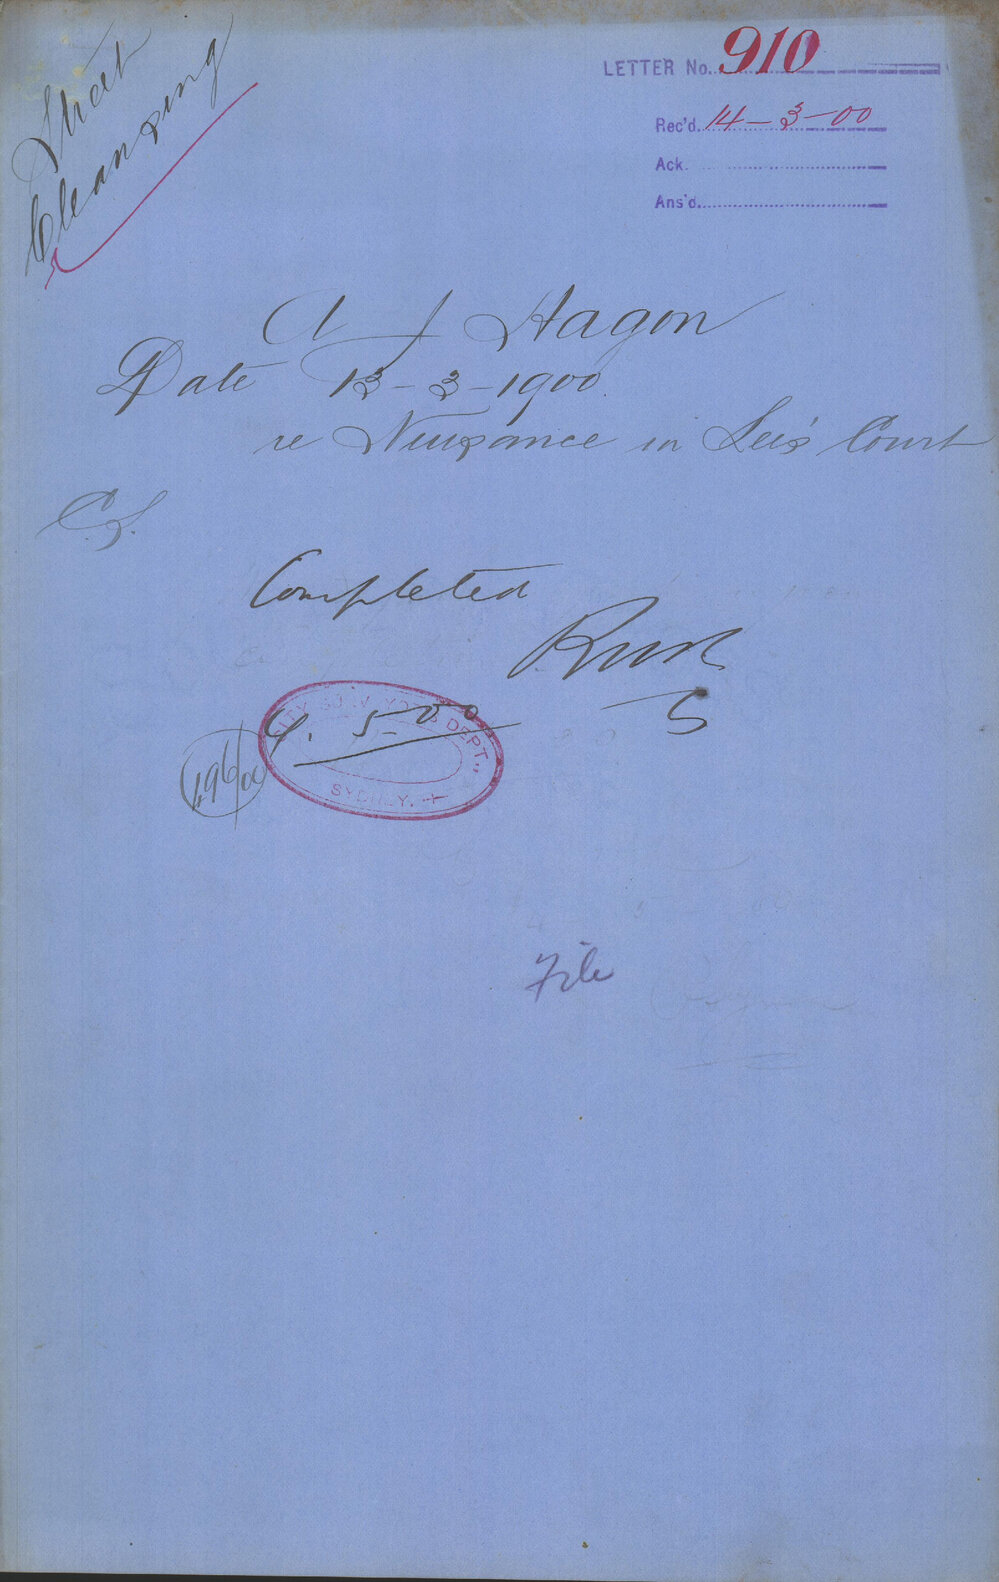 Street
Cleansing
LETTER No. 910
Rec'd. 14-3-00
Ack.
Ans'd.
A J Hagon
Date 13-3-1900
re Nuisance in Lee's Court
C.S.
Completed
4. 5-00
CITY SURVEYOR'S DEPT.
SYDNEY.
496/00
File